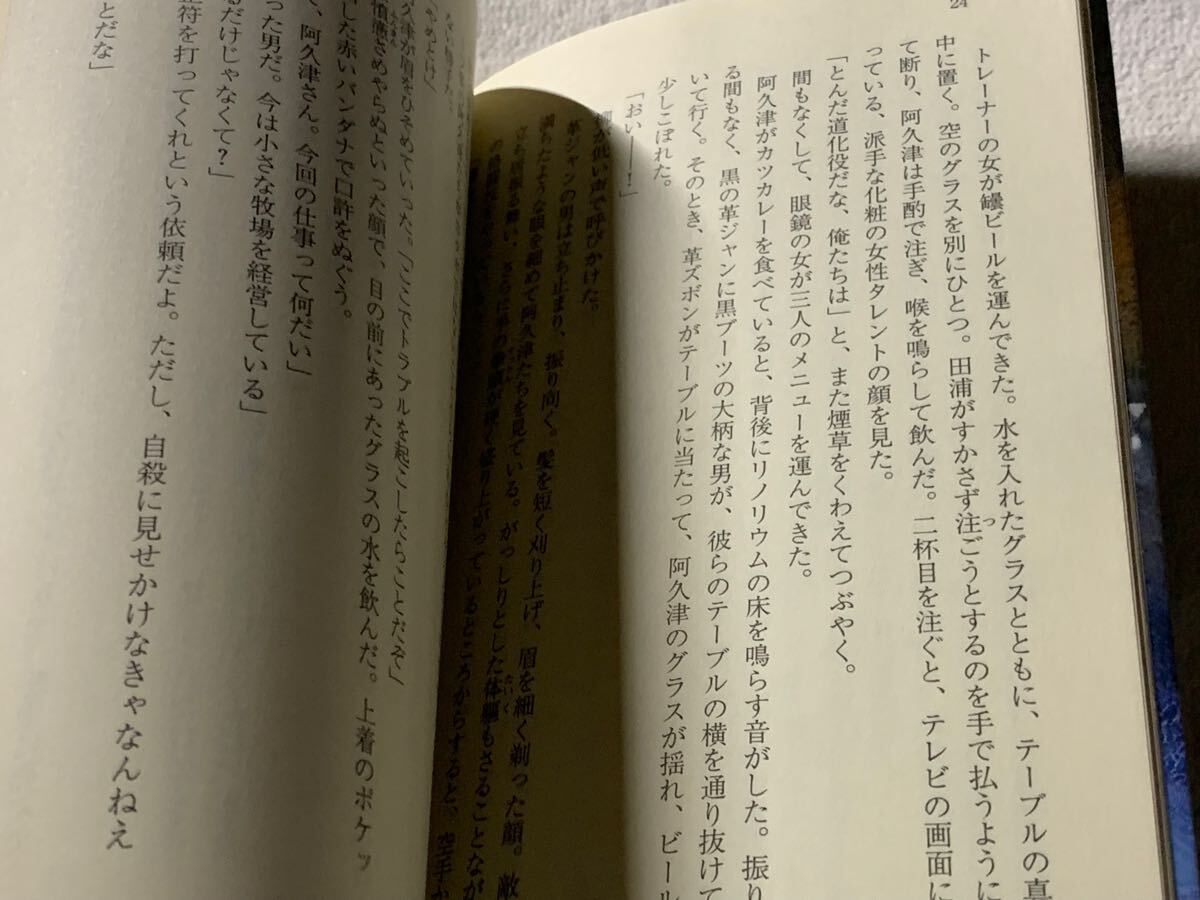 24
トレーナーの女が罎ビールを運んできた。水を入れたグラスとともに、テーブルの真
中に置く。空のグラスを別にひとつ。田浦がすかさず注ごうとするのを手で払うように
つ
て断り、阿久津は手酌で注ぎ、喉を鳴らして飲んだ。二杯目を注ぐと、テレビの画面に
っている、派手な化粧の女性タレントの顔を見た。
「とんだ道化役だな、俺たちは」と、また煙草をくわえてつぶやく。
間もなくして、眼鏡の女が三人のメニューを運んできた。
阿久津がカツカレーを食べていると、背後にリノリウムの床を鳴らす音がした。振り
る間もなく、黒の革ジャンに黒ブーツの大柄な男が、彼らのテーブルの横を通り抜けて
いて行く。そのとき、革ズボンがテーブルに当たって、阿久津のグラスが揺れ、ビール
少しこぼれた。
「おい――！」
が低い声で呼びかけた。
革ジャンの男は立ち止まり、振り向く。髪を短く刈り上げ、眉を細く剃った顔。敵
ちたような眼を細めて阿久津たちを見ている。がっしりとした体軀もさることなが
たいく
立ち居振る舞い、さらに拳の
が硬く盛り上がっているところからすると、空手か
「やめとけ」
久津が眉をひそめていった。「ここでトラブルを起こしたらことだぞ」
憤懣さめやらぬといった顔で、目の前にあったグラスの水を飲んだ。上着のポケッ
ふんまん
した赤いバンダナで口許をぬぐう。
で、阿久津さん。今回の仕事って何だい」
った男だ。今は小さな牧場を経営している」
るだけじゃなくて？」
止符を打ってくれという依頼だよ。ただし、自殺に見せかけなきゃなんねえ
とだな」